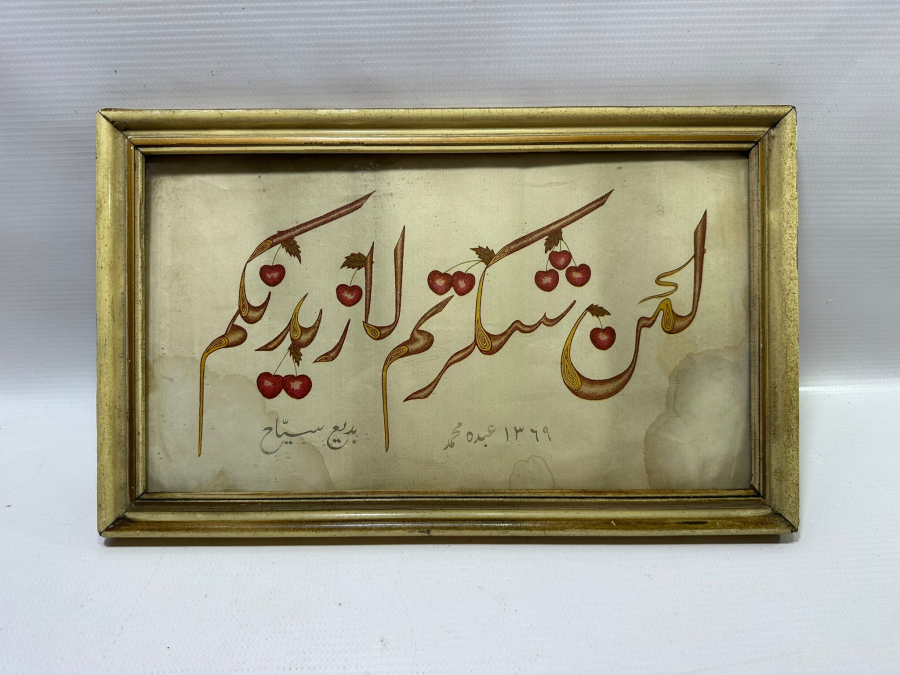 لئن شكرتم لازيدنكم
١٣٦٩ عبده محمد بديع سيّاح